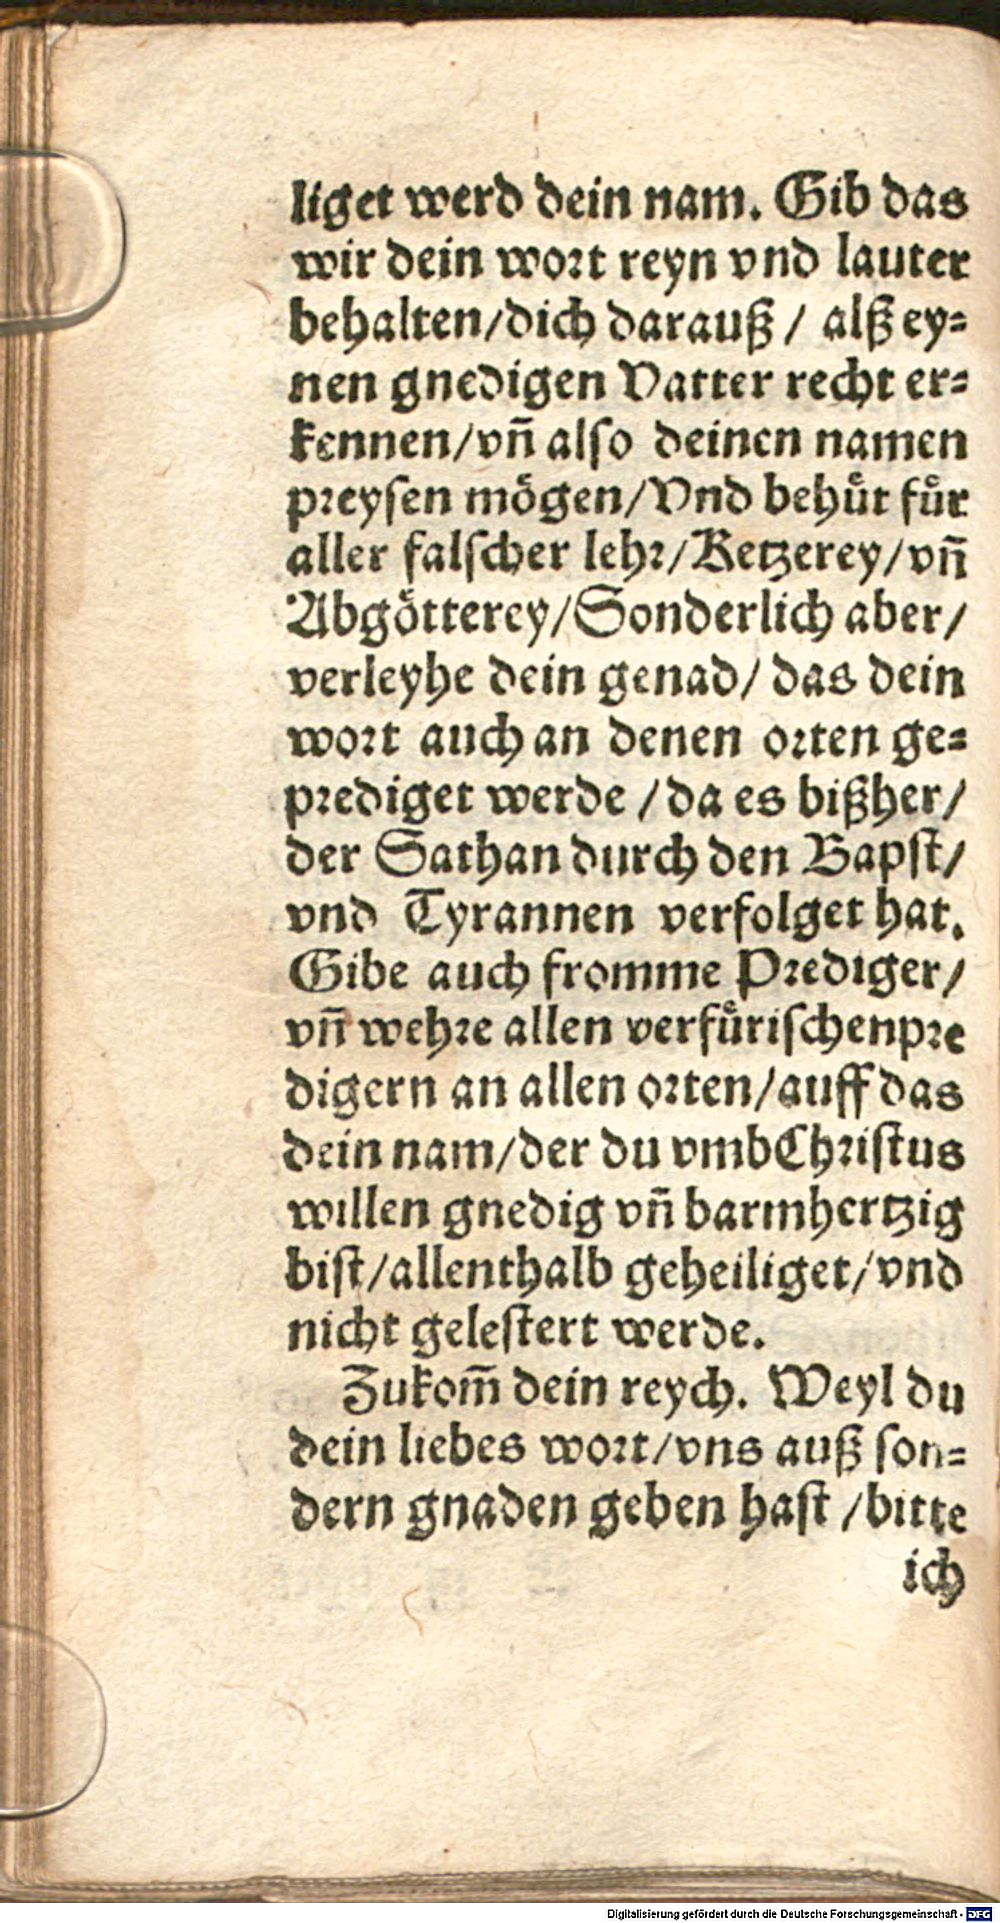 liget werd dein nam. Gib das
wir dein wort reyn vnd lauter
behalten/dich darauß / alß ey⸗
nen gnedigen Vatter recht er⸗
kennen/vñ also deinen namen
preysen mögen/Vnd behuͤt fuͤr
aller falscher lehr/Ketzerey/vñ
Abgötterey/Sonderlich aber/
verleyhe dein genad/ das dein
wort auch an denen orten ge⸗
prediget werde / da es bißher/
der Sathan durch den Bapst/
vnd Tyrannen verfolget hat.
Gibe auch fromme Prediger/
vñ wehre allen verfuͤrischenpre
digern an allen orten/auff das
dein nam/der du vmbChristus
willen gnedig vñ barmhertzig
bist/allenthalb geheiliget/vnd
nicht gelestert werde.
Zukom̃ dein reych. Weyl du
dein liebes wort/vns auß son⸗
dern gnaden geben hast /bitte
ich
Digitalisierung gefördert durch die Deutsche Forschungsgemeinschaft - DFG